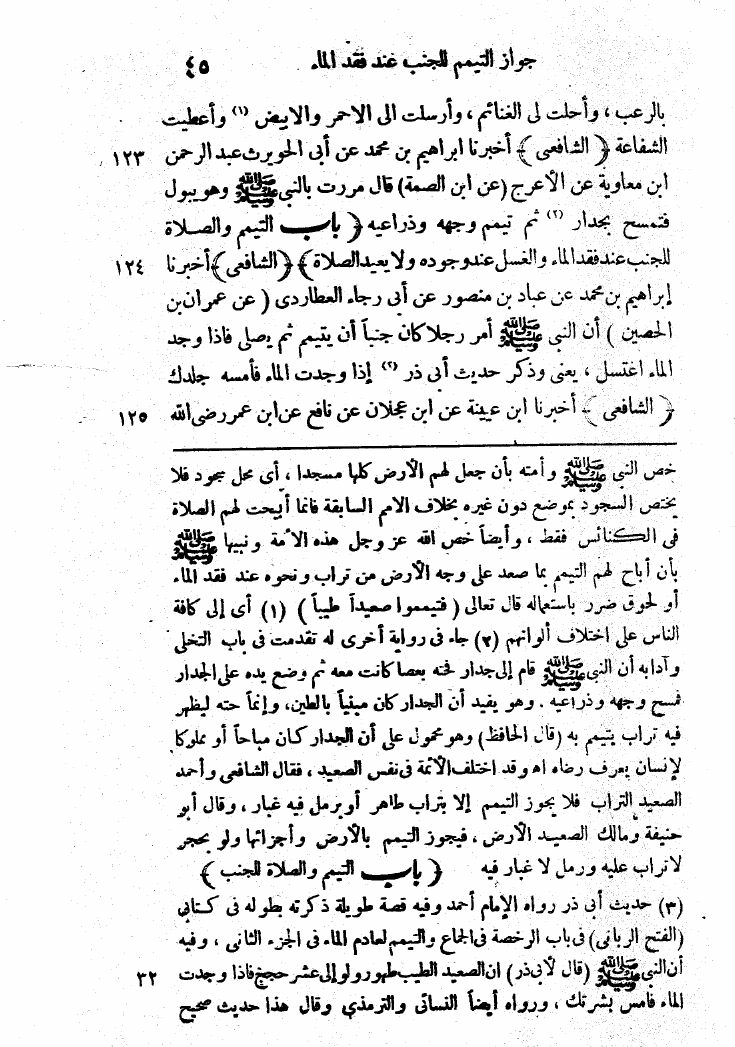 جواز التيمم للجنب عند فقد الماء ٤٥
بالرعب ، وأحلت لى الغنائم ، وأرسلت الى الاحمر والابيض (١) وأعطيت
الشفاعة ﴿ الشافعى ﴾ أخبرنا ابراهيم بن محمد عن أبى الحويرث عبد الرحمن ١٢٣
ابن معاوية عن الأعرج (عن ابن الصمة) قال مررت بالنبى ﷺ وهو يبول
فتمسح بجدار (٢) ثم تيمم وجهه وذراعيه ﴿ باب التيمم والصلاة
للجنب عند فقد الماء والغسل عند وجوده ولا يعيد الصلاة ﴾ ﴿ الشافعى ﴾ أخبرنا ١٢٤
إبراهيم بن محمد عن عباد بن منصور عن أبى رجاء العطاردى ( عن عمران بن
الحصين ) أن النبى ﷺ أمر رجلا كان جنباً أن يتيمم ثم يصلى فاذا وجد
الماء اغتسل ، يعنى وذكر حديث أبى ذر (٣) إذا وجدت الماء فأمسه جلدك
﴿ الشافعى ﴾ أخبرنا ابن عيينة عن ابن عجلان عن نافع عن ابن عمر رضى الله ١٢٥
خص النبى ﷺ وأمته بأن جعل لهم الأرض كلها مسجدا ، أى محل سجود فلا
يختص السجود بموضع دون غيره بخلاف الامم السابقة فانما أبيحت لهم الصلاة
فى الكنائس فقط ، وأيضاً خص الله عز وجل هذه الأمة ونبيها ﷺ
بأن أباح لهم التيمم بما صعد على وجه الأرض من تراب ونحوه عند فقد الماء
أو لحوق ضرر باستعماله قال تعالى ( فتيمموا صعيداً طيباً ) (١) أى إلى كافة
الناس على اختلاف ألوانهم (٢) جاء فى رواية أخرى له تقدمت فى باب التخلى
وآدابه أن النبى ﷺ قام إلى جدار فحته بعصا كانت معه ثم وضع يده على الجدار
فمسح وجهه وذراعيه . وهو يفيد أن الجدار كان مبنياً بالطين، وإنما حته ليظهر
فيه تراب يتيمم به (قال الحافظ) وهو محمول على أن الجدار كان مباحاً أو مملوكا
لإنسان يعرف رضاه اه وقد اختلف الأئمة فى نفس الصعيد ، فقال الشافعى وأحمد
الصعيد التراب فلا يجوز التيمم إلا بتراب طاهر أو برمل فيه غبار ، وقال أبو
حنيفة ومالك الصعيد الأرض ، فيجوز التيمم بالأرض وأجزائها ولو بحجر
لا تراب عليه ورمل لا غبار فيه ﴿ باب التيمم والصلاة للجنب ﴾
(٣) حديث أبى ذر رواه الإمام أحمد وفيه قصة طويلة ذكرته بطوله فى كتابى
(الفتح الربانى) فى باب الرخصة فى الجماع والتيمم لعادم الماء فى الجزء الثانى ، وفيه
أن النبى ﷺ (قال لأبى ذر) ان الصعيد الطيب طهور ولو إلى عشر حجج فاذا وجدت ٣٢
الماء فامس بشرتك ، ورواه أيضاً النسائى والترمذي وقال هذا حديث صحيح